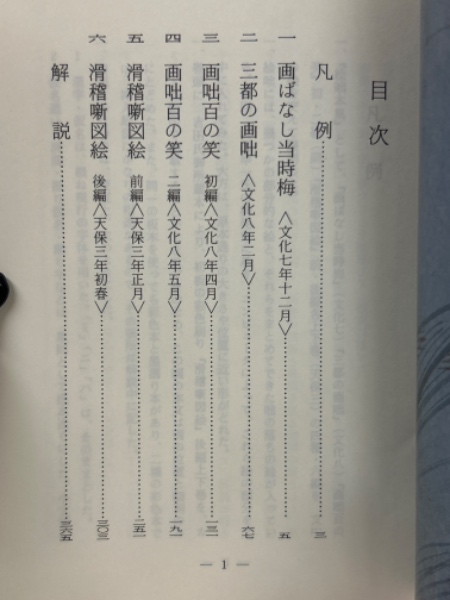 目次
凡例……三
一 画ばなし当時梅 〈文化七年十二月〉……五
二 三都の画咄 〈文化八年二月〉……六七
三 画咄百の笑 初編〈文化八年四月〉……一三一
四 画咄百の笑 二編〈文化八年五月〉……一九一
五 滑稽噺図絵 前編〈天保三年正月〉……二五一
六 滑稽噺図絵 後編〈天保三年初春〉……三〇三
解説……三六五
— 1 —